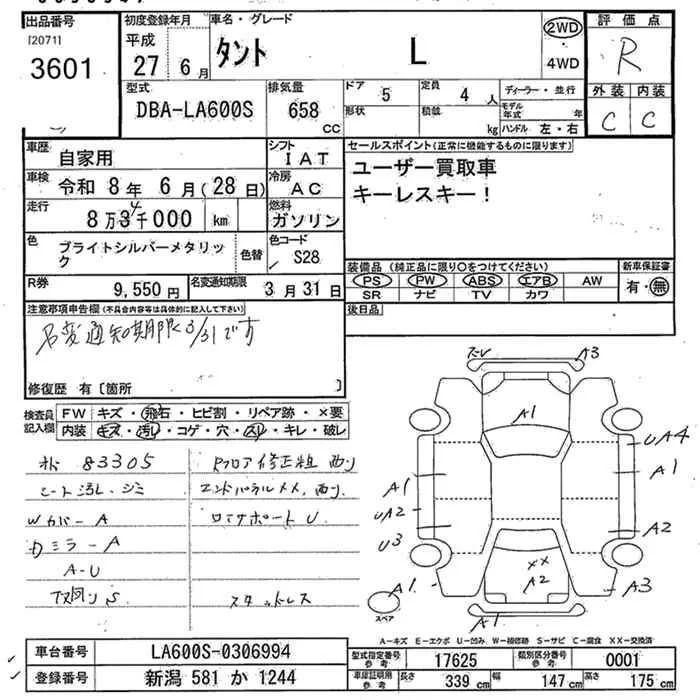 出品番号
[2071]
3601
初度登録年月
平成
27 6月
車名・グレード
タント L
2WD
4WD
評価点
R
外装 内装
C C
型式
DBA-LA600S
排気量
658 cc
ドア 5
形状
定員 4 人
積載 kg
ディーラー・並行
モデル年式 年
ハンドル 左・右
車歴
自家用
シフト
IAT
車検
令和 8年 6月(28日)
冷房
AC
走行
8万3千000 km
4
燃料
ガソリン
色
ブライトシルバーメタリック
色替
色コード
S28
R券
9,550円
名変通知期限
3月31日
セールスポイント(正常に機能するものに限ります)
ユーザー買取車
キーレスキー!
装備品(純正品に限り○をつけてください)
PS PW ABS エアB AW
SR ナビ TV カワ
新車保証書
有・無
後日品
注意事項申告欄(不具合内容等は具体的に記入して下さい)
名変通知期限3/31です
修復歴 有〔箇所 〕
検査員記入欄
FW キズ・飛石・ヒビ割・リペア跡・×要
内装 キズ・汚れ・コゲ・穴・スリ・キレ・破レ
83305
シート汚し・シミ
Wカバー A
Dミラー A
A-U
下回りS
Rフロア修正粗
エンドパネル
ロアサポート U
スタッドレス
A3
A1
UA4
A1
A1
UA2
U3
A2
XX
A2
A1
A3
A1
スペア
A-キズ E-エクボ U-凹み W-補修跡 S-サビ C-腐食 XX-交換済
車台番号
LA600S-0306994
登録番号
新潟 581 か 1244
型式指定番号 参考
17625
類別区分番号 参考
0001
車庫証明用 参考
長さ 339 cm
幅 147 cm
高さ 175 cm